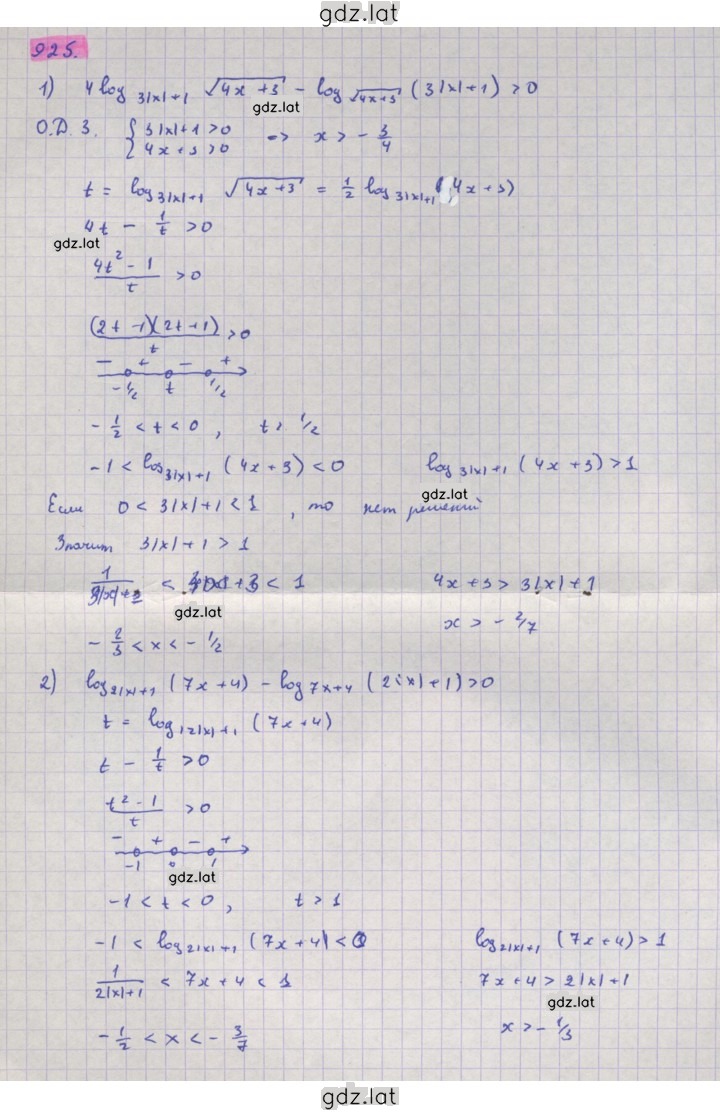 gdz.lat
925.
1) 4 log_{3|x|+1} √(4x+3) - log_{√(4x+3)} (3|x|+1) > 0
gdz.lat
О.Д.З. { 3|x|+1 > 0
4x+3 > 0 => x > - 3/4
t = log_{3|x|+1} √(4x+3) = 1/2 log_{3|x|+1} (4x+3)
4t - 1/t > 0
gdz.lat
(4t² - 1)/t > 0
((2t-1)(2t+1))/t > 0
- + - +
-1/2 t 1/2
- 1/2 < t < 0 , t > 1/2
-1 < log_{3|x|+1} (4x+3) < 0 log_{3|x|+1} (4x+3) > 1
gdz.lat
Если 0 < 3|x|+1 < 1 , то нет решений
Значит 3|x|+1 > 1
1/(3|x|+1) < 4x+3 < 1 4x+3 > 3|x|+1
gdz.lat
- 2/3 < x < - 1/2 x > - 2/7
2) log_{2|x|+1} (7x+4) - log_{7x+4} (2|x|+1) > 0
t = log_{|2|x|+1} (7x+4)
t - 1/t > 0
(t² - 1)/t > 0
- + - +
-1 0 1
gdz.lat
-1 < t < 0 , t > 1
-1 < log_{2|x|+1} (7x+4) < 0 log_{2|x|+1} (7x+4) > 1
1/(2|x|+1) < 7x+4 < 1 7x+4 > 2|x|+1
gdz.lat
- 1/2 < x < - 3/7 x > - 1/3
gdz.lat